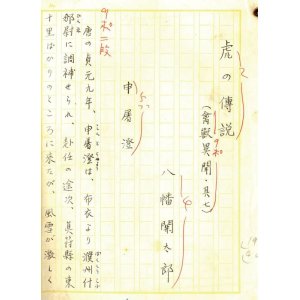 虎の傳説
(禽獸異聞・其七)
八幡關太郎
申屠澄
唐の貞元九年、申屠澄は、布衣より濮州什
邡尉に調補せられ、赴任の途次、眞符縣の東
十里ばかりのところに來たが、風雪が激しく